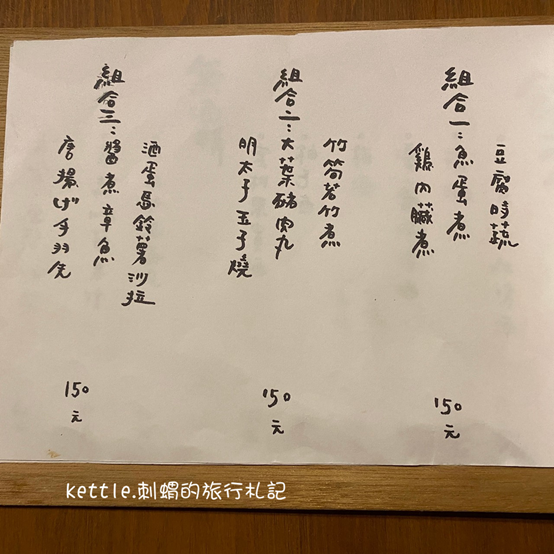 豆腐時蔬
組合一：魚蛋煮
鶏內臟煮
150
元
竹筍若竹煮
組合二：大葉豬肉丸
明太子玉子燒
150
元
酒蛋馬鈴薯沙拉
組合三：醬煮章魚
唐揚げ手羽先
150
元
kettle.刺蝟的旅行札記